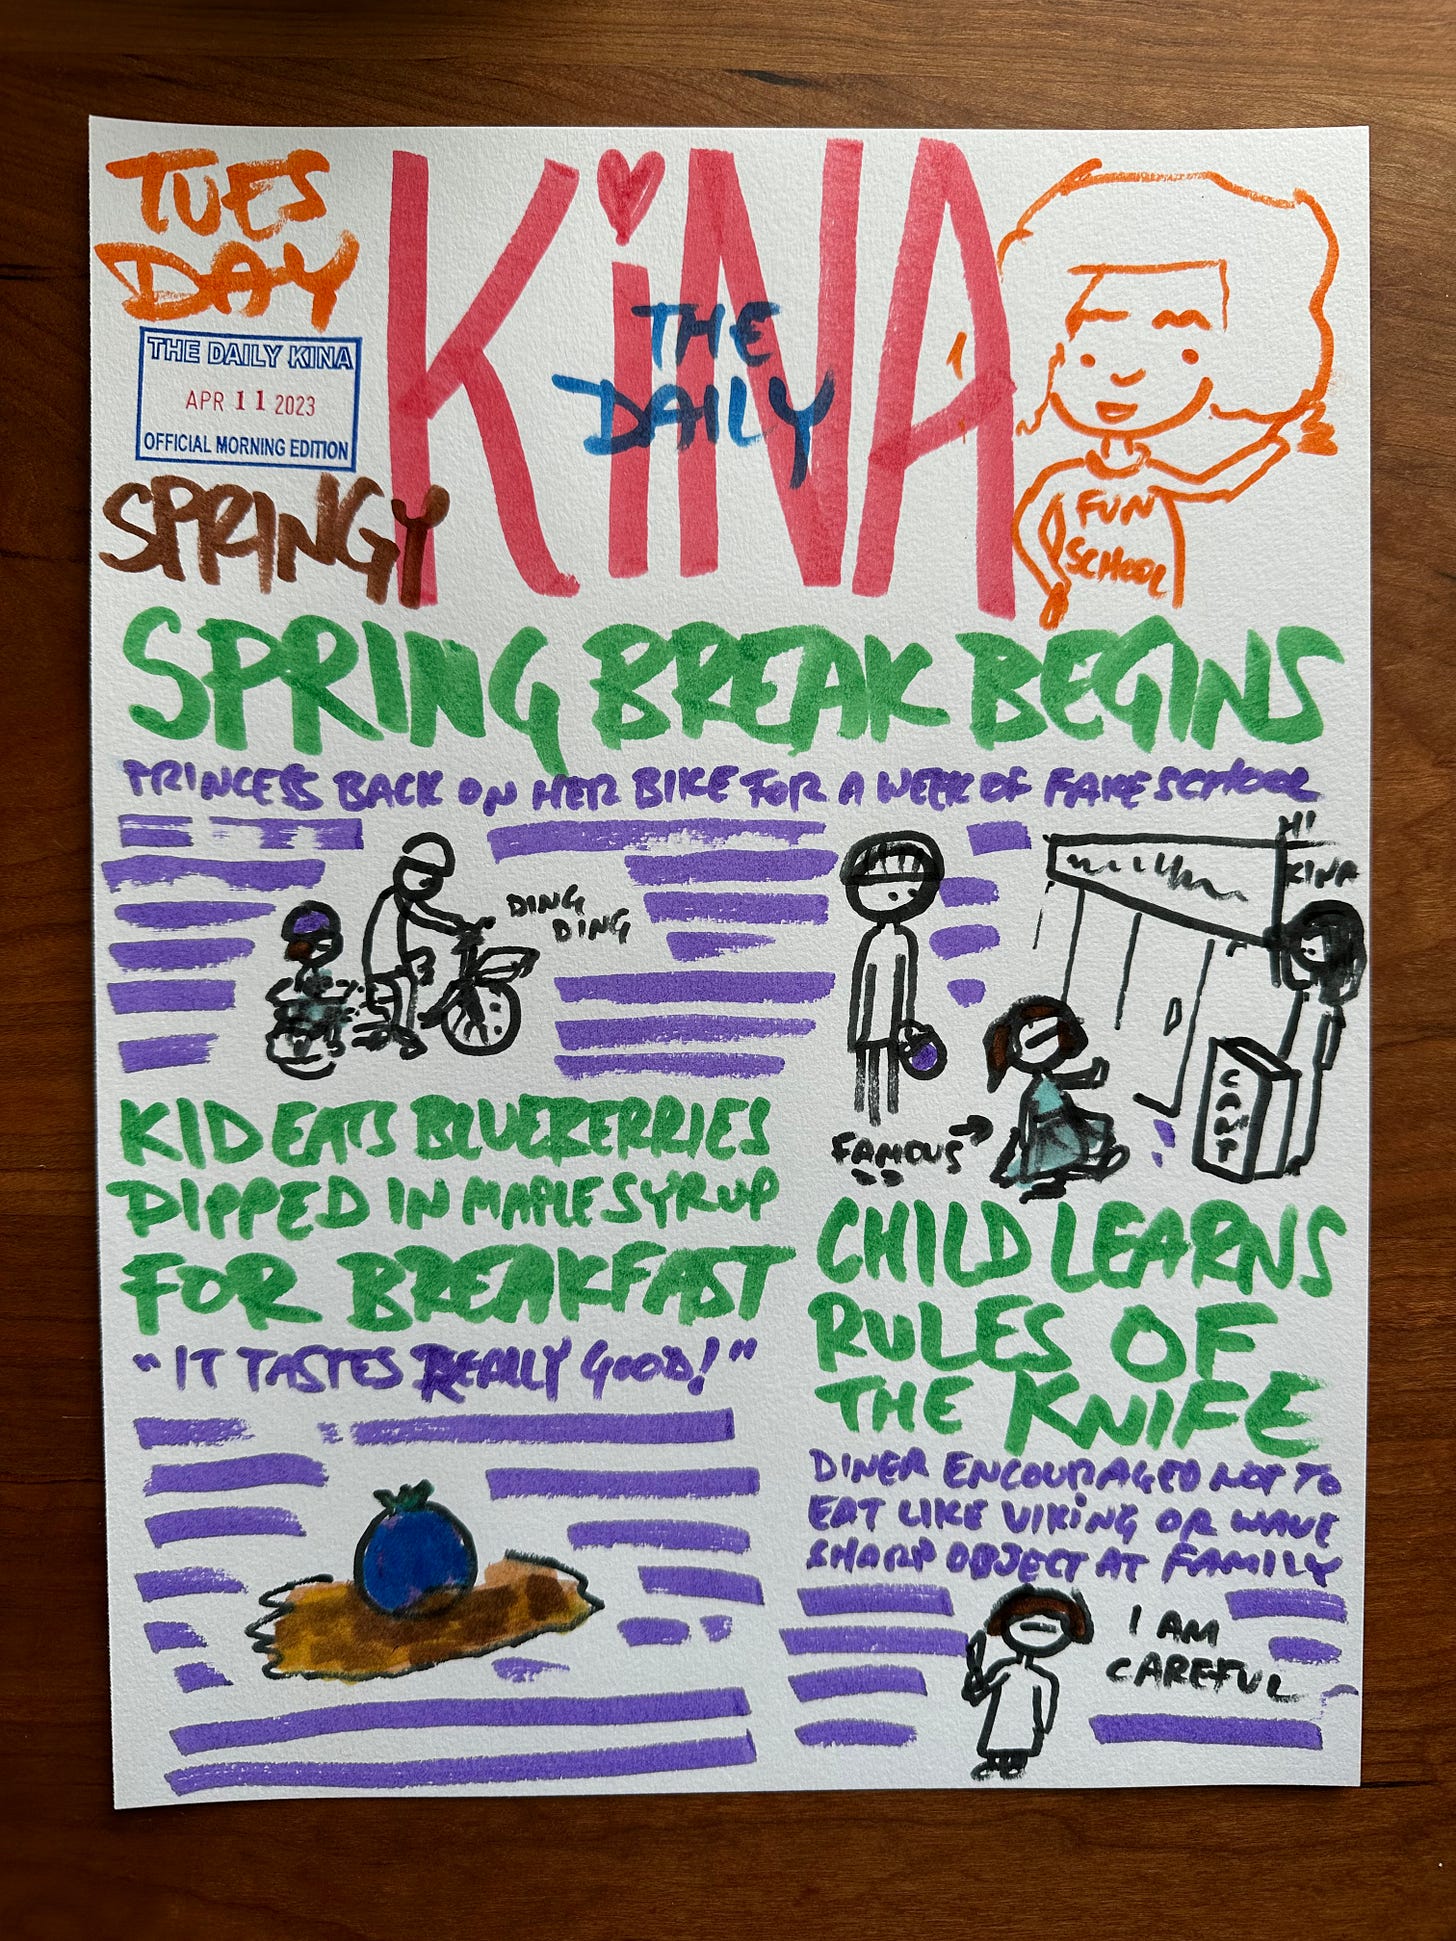 TUES
DAY
THE DAILY KINA
APR 11 2023
OFFICIAL MORNING EDITION
SPRINGY
KiNA
THE
DAILY
FUN
SCHOOL
SPRING BREAK BEGINS
PRINCESS BACK ON HER BIKE FOR A WEEK OF FAKE SCHOOL
DING
DING
HI
KINA
CAMP
FAMOUS
KID EATS BLUEBERRIES
DIPPED IN MAPLE SYRUP
FOR BREAKFAST
"IT TASTES REALLY GOOD!"
CHILD LEARNS
RULES OF
THE KNIFE
DINER ENCOURAGED NOT TO
EAT LIKE VIKING OR WAVE
SHARP OBJECT AT FAMILY
I AM
CAREFUL